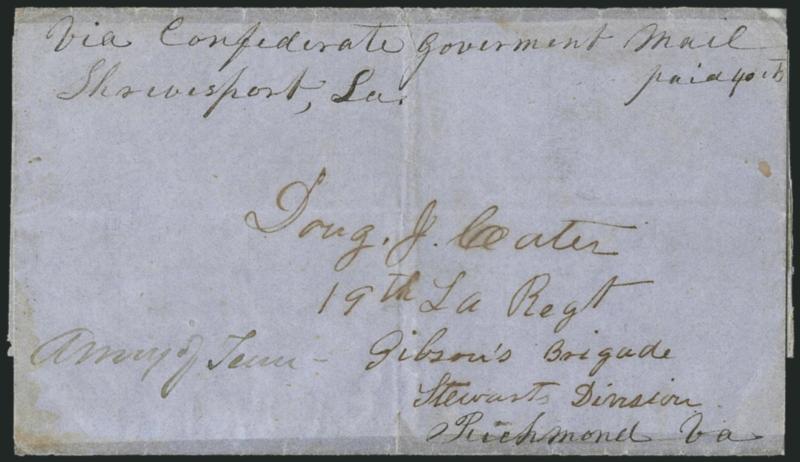 Via Confederate Goverment Mail
Shreveport, La.
paid 40 cts
Doug. J. Cater
19th La Regt
Army of Tenn - Gibson's Brigade
Stewarts Division
Richmond Va